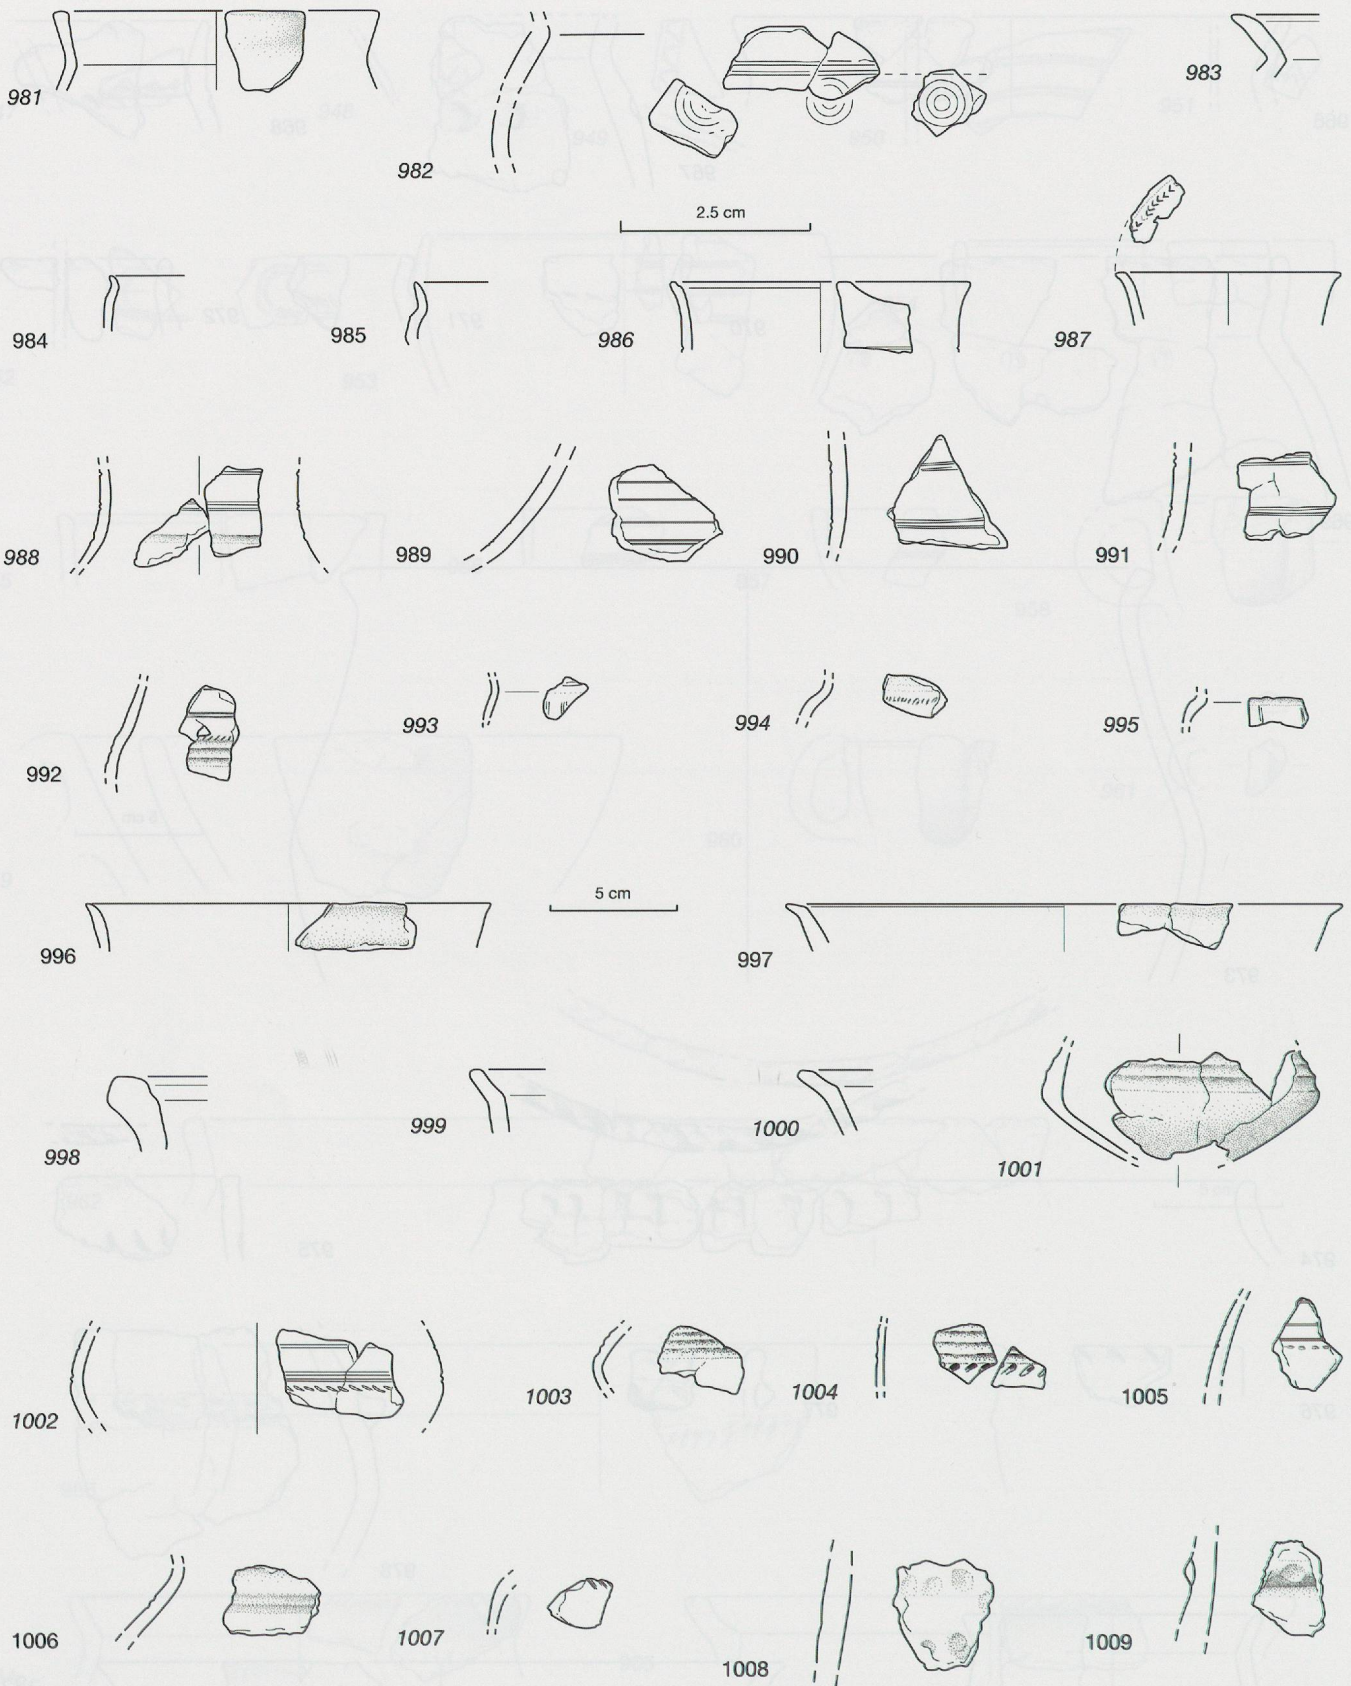 981
982
983
2.5 cm
984
985
986
987
988
989
990
991
992
993
994
995
996
5 cm
997
998
999
1000
1001
1002
1003
1004
1005
1006
1007
1008
1009